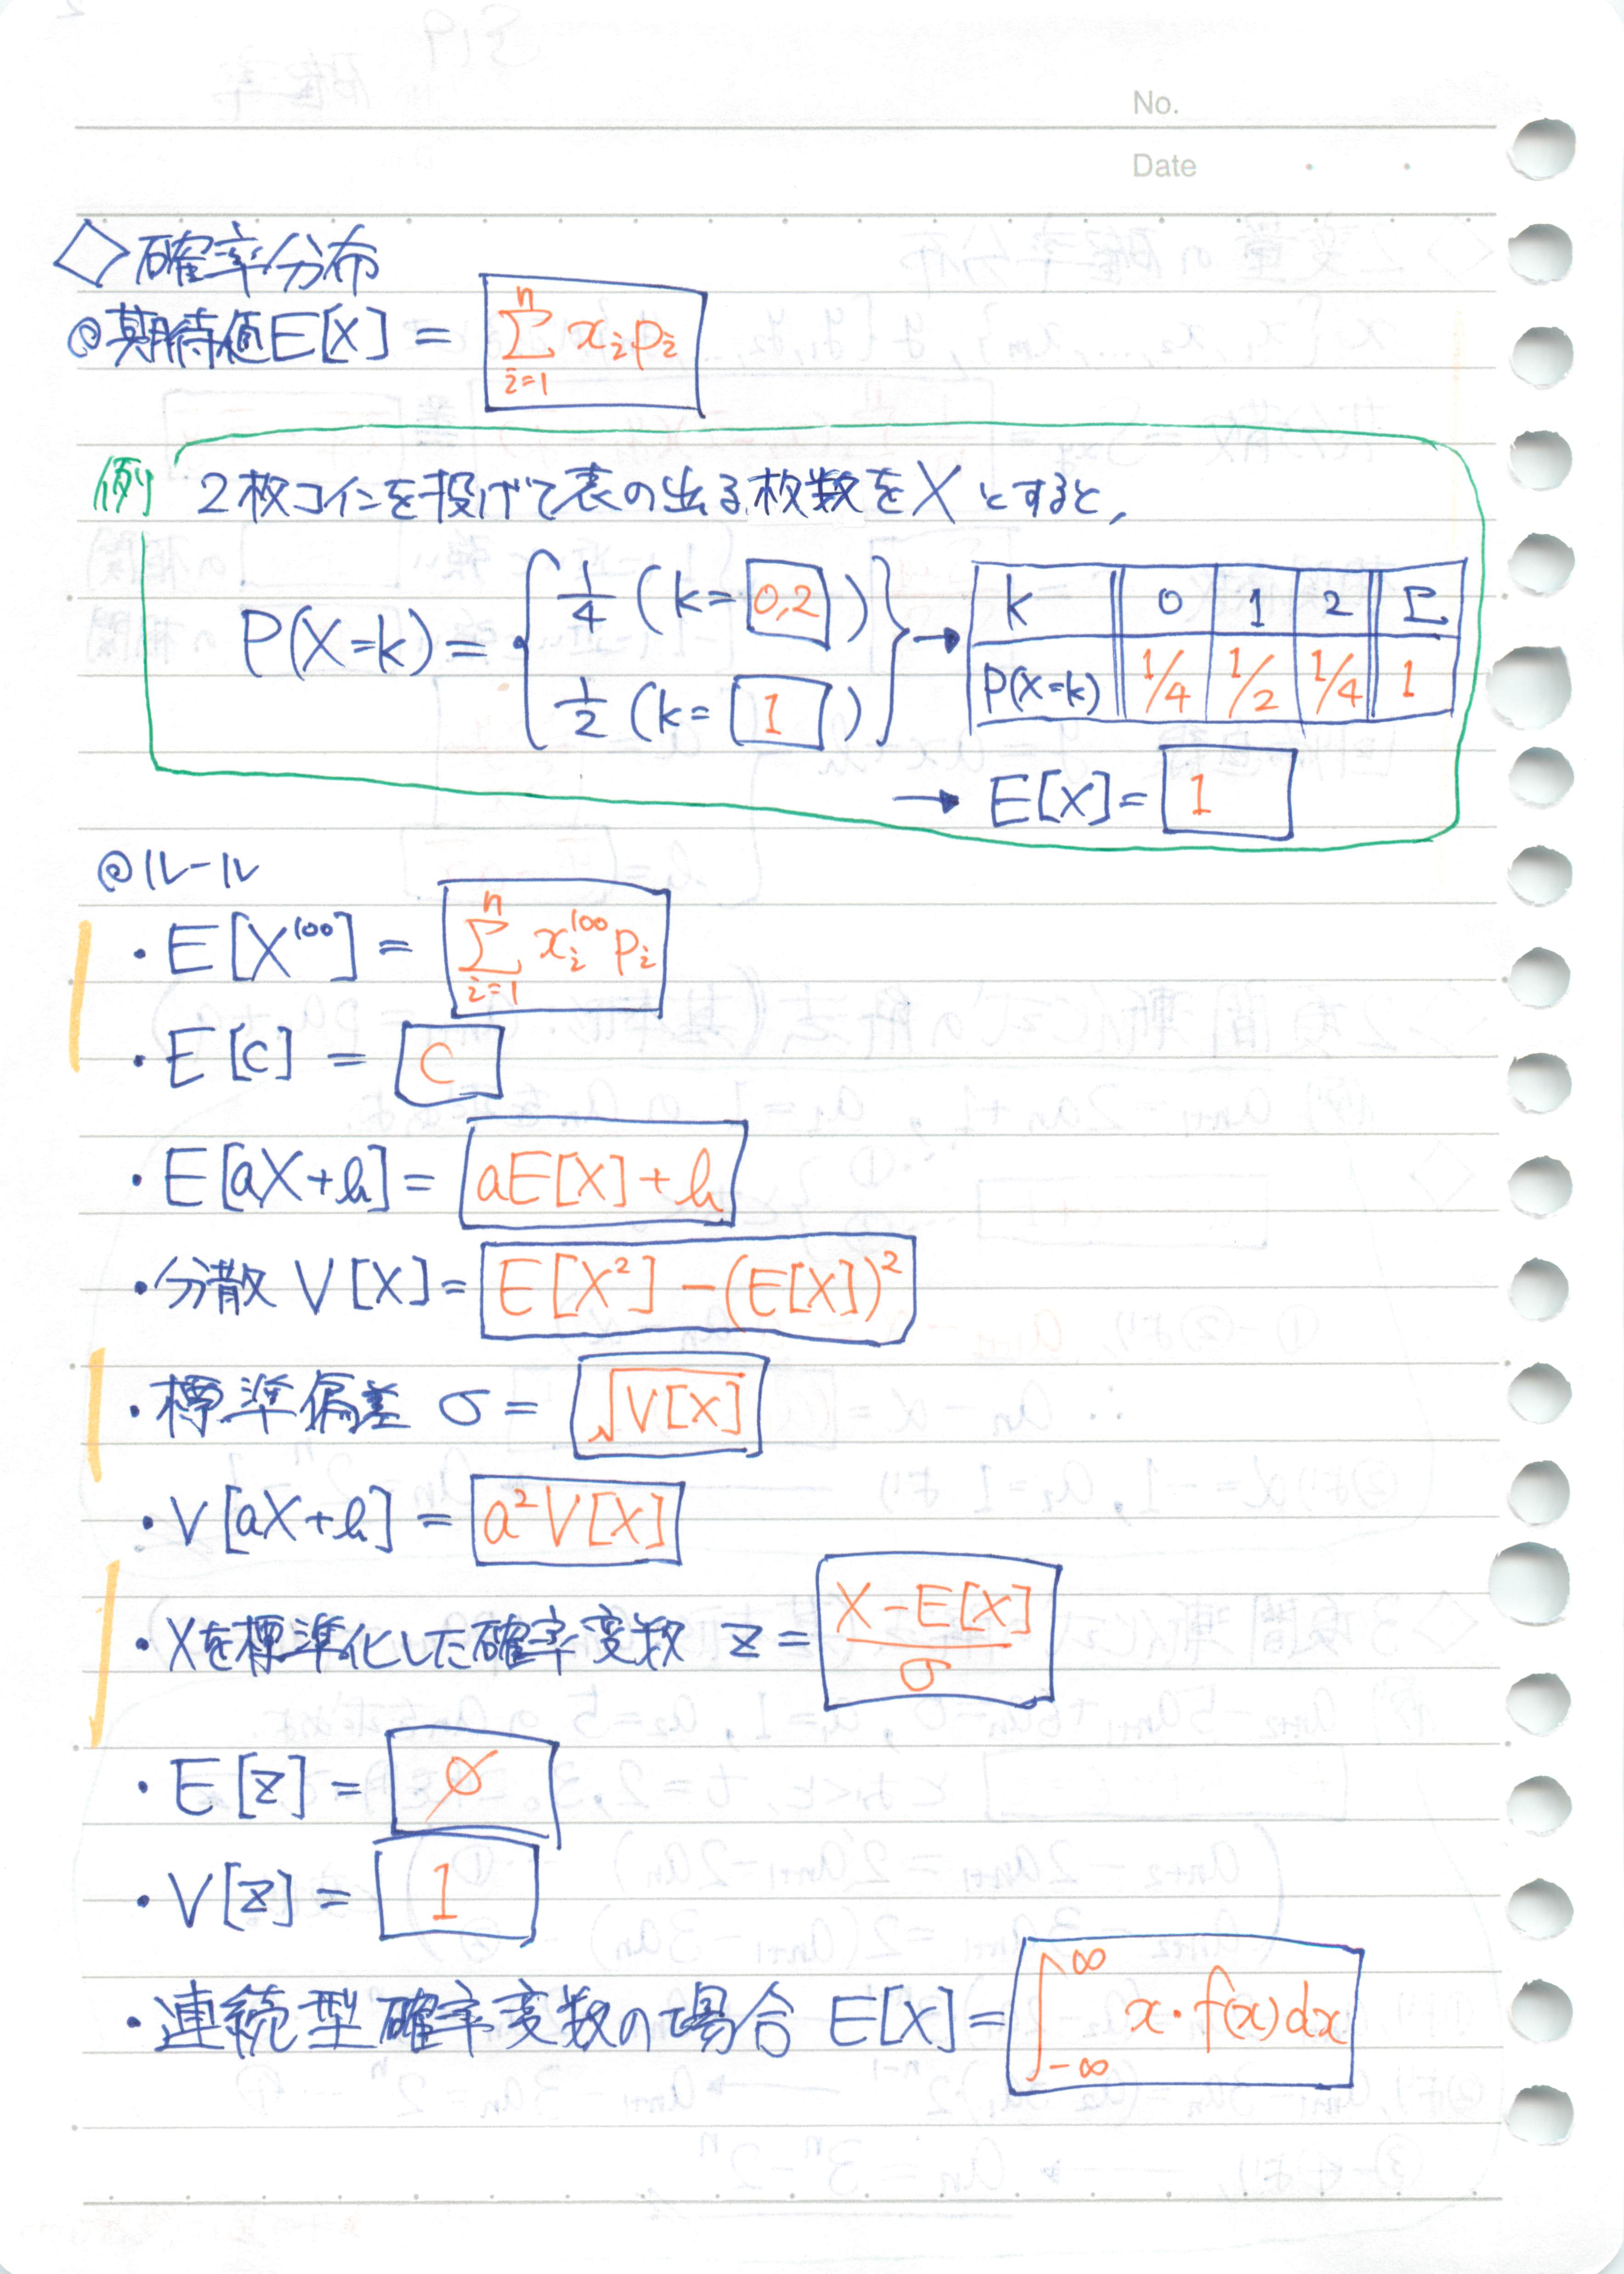 No.
Date
◇確率分布
◎期待値E[X] = \sum_{i=1}^{n} x_i p_i
例 2枚コインを投げて表の出る枚数をXとすると,
P(X=k) = { 1/4 (k= 0,2 )
1/2 (k= 1 ) } →
k 0 1 2 Σ
P(X=k) 1/4 1/2 1/4 1
→ E[X]= 1
◎ルール
・E[X^{100}] = \sum_{i=1}^{n} x_i^{100} p_i
・E[c] = c
・E[aX+b] = aE[X]+b
・分散 V[X] = E[X²]-(E[X])²
・標準偏差 σ = √V[X]
・V[aX+b] = a²V[X]
・Xを標準化した確率変数 z = \frac{X-E[X]}{σ}
・E[z] = 0
・V[z] = 1
・連続型確率変数の場合 E[X] = \int_{-∞}^{∞} x・f(x)dx